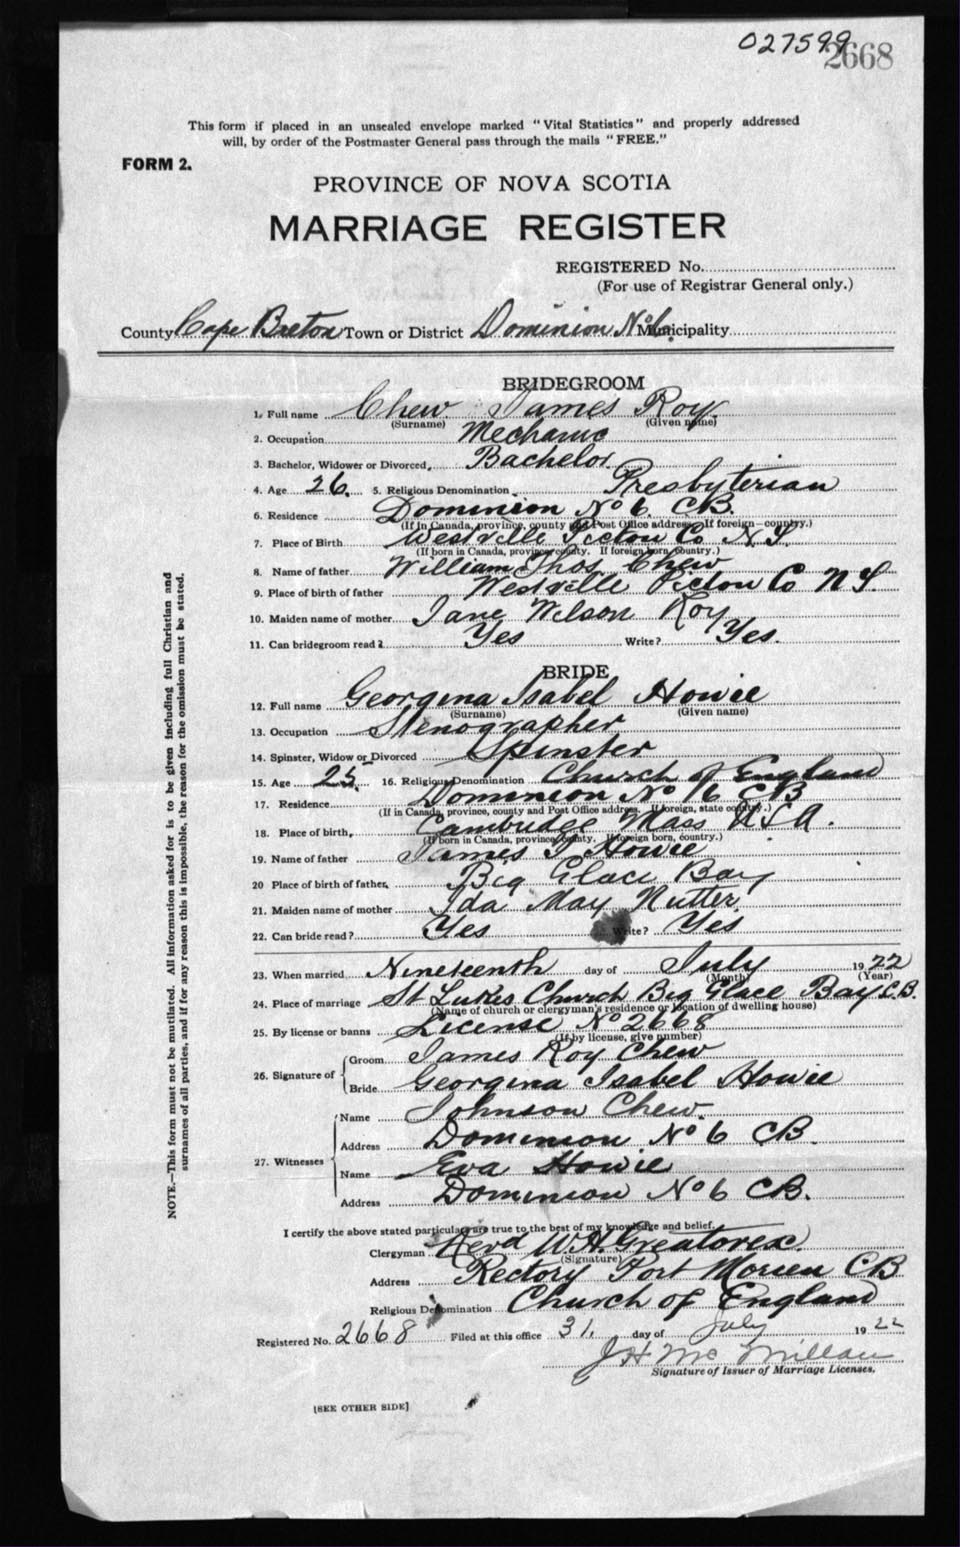 027599
2668
This form if placed in an unsealed envelope marked "Vital Statistics" and properly addressed
will, by order of the Postmaster General pass through the mails "FREE."
FORM 2.
PROVINCE OF NOVA SCOTIA
MARRIAGE REGISTER
REGISTERED No.
(For use of Registrar General only.)
County Cape Breton Town or District Dominion No 6 Municipality
BRIDEGROOM
1. Full name Chew James Roy.
(Surname) (Given name)
2. Occupation Mechanic
3. Bachelor, Widower or Divorced, Bachelor.
4. Age 26. 5. Religious Denomination Presbyterian
6. Residence Dominion No 6 CB.
(If in Canada, province, county and Post Office address. If foreign—country.)
7. Place of Birth Westville Pictou Co N.S.
(If born in Canada, province, county. If foreign born, country.)
8. Name of father William Thos. Chew
9. Place of birth of father Westville Pictou Co N.S.
10. Maiden name of mother Jane Wilson Roy
11. Can bridegroom read? Yes Write? Yes.
BRIDE
12. Full name Georgina Isabel Howie
(Surname) (Given name)
13. Occupation Stenographer
14. Spinster, Widow or Divorced Spinster
15. Age 25. 16. Religious Denomination Church of England
17. Residence Dominion No 6 CB
(If in Canada, province, county and Post Office address. If foreign, state country.)
18. Place of birth, Cambridge Mass U.S.A.
(If born in Canada, province, county. If foreign born, country.)
19. Name of father James Howie
20 Place of birth of father, Big Glace Bay
21. Maiden name of mother Ida May Nutter.
22. Can bride read? Yes Write? Yes
23. When married Nineteenth day of July 1922
(Month) (Year)
24. Place of marriage St Lukes Church Big Glace Bay C.B.
(Name of church or clergyman's residence or location of dwelling house)
25. By license or banns License No 2668
(If by license, give number)
26. Signature of Groom James Roy Chew
Bride Georgina Isabel Howie
27. Witnesses Name Johnson Chew.
Address Dominion No 6 CB.
Name Eva Howie
Address Dominion No 6 CB.
I certify the above stated particulars are true to the best of my knowledge and belief.
Clergyman Revd W.H. Greatorex.
(Signature)
Address Rectory Port Morien CB
Religious Denomination Church of England
Registered No. 2668 Filed at this office 31. day of July 1922
J H McMillan
Signature of Issuer of Marriage Licenses.
[SEE OTHER SIDE]
NOTE.—This form must not be mutilated. All information asked for is to be given including full Christian and
surnames of all parties, and if for any reason this is impossible, the reason for the omission must be stated.